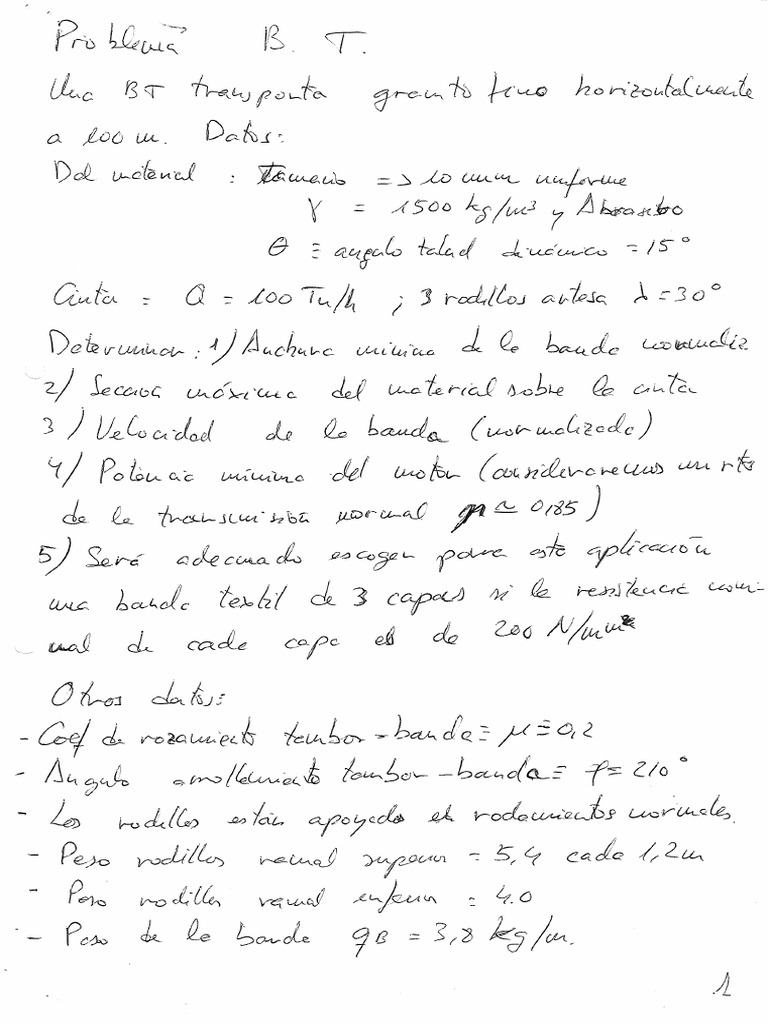 Problema B. T.
Una BT transporta granito fino horizontalmente
a 100 m. Datos:
Del material : Tamano => 10 mm uniforme
γ = 1500 kg/m³ y Abrasivo
θ ≡ angulo talud dinámico = 15°
Cinta = Q = 100 Tn/h ; 3 rodillos artesa λ = 30°
Determinar : 1) Anchura minima de la banda normaliz
2) Seccion máxima del material sobre la cinta
3) Velocidad de la banda (normalizada)
4) Potencia minima del motor (consideraremos un rto
de la transmisión normal η ≃ 0,85)
5) Será adecuado escoger para esta aplicación
una banda textil de 3 capas si la resistencia nomi-
nal de cada capa es de 200 N/mm
Otros datos:
- Coef de rozamiento tambor-banda ≡ μ ≡ 0,2
- Angulo arrollamiento tambor-banda ≡ φ = 210°
- Los rodillos están apoyados en rodamientos normales.
- Peso rodillos ramal superior = 5,4 cada 1,2m
- Peso rodillos ramal inferior = 4.0
- Peso de la banda qB = 3,8 kg/m.
1